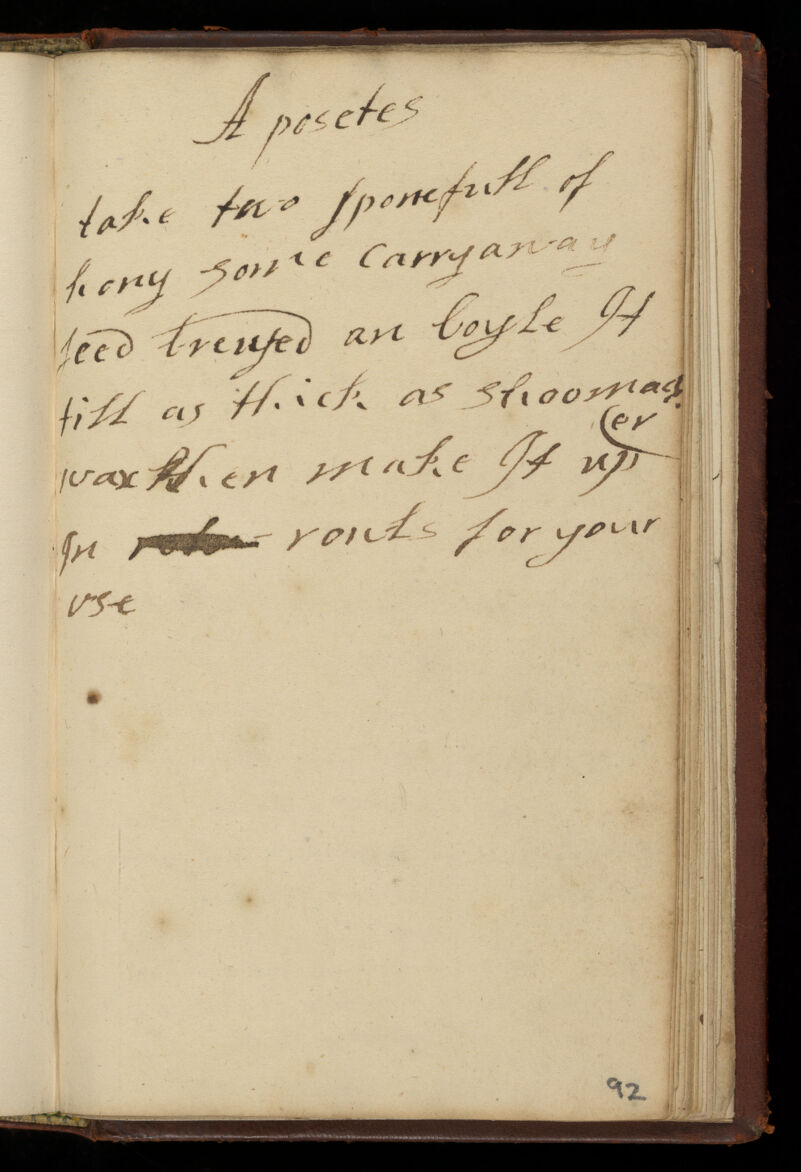 A posetes
take two sponefull of
hony some Carryaway
seed breused an boyle It
till as thick as shoomack
(er
wax then make It up
In routs for your
use
92